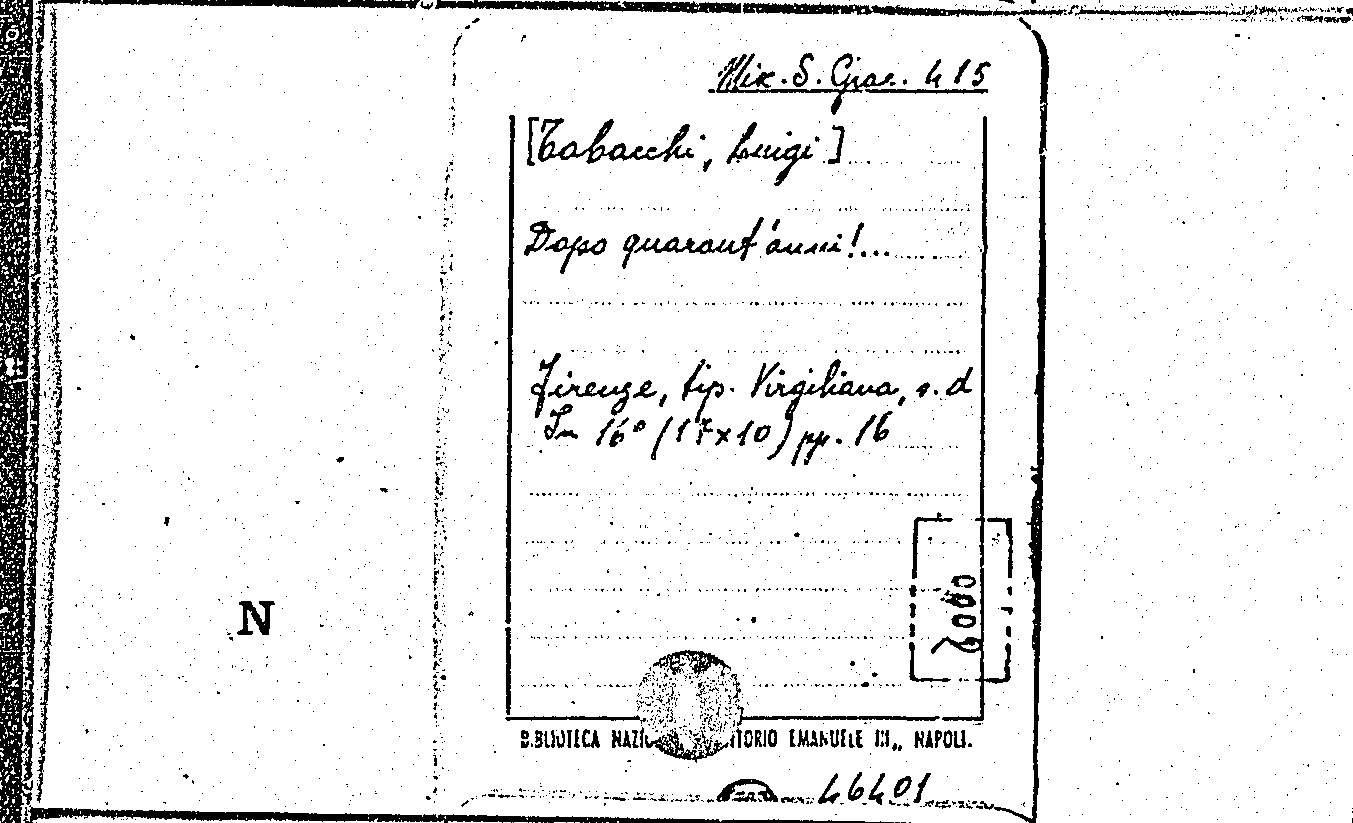 Mix. S. Giac. 415
[Tabacchi, Luigi]
Dopo quarant'anni!...
Firenze, tip. Virgiliana, s. d
In 16° (17x10) pp. 16
N
BIBLIOTECA EMANUELE III„ NAPOLI.
46401